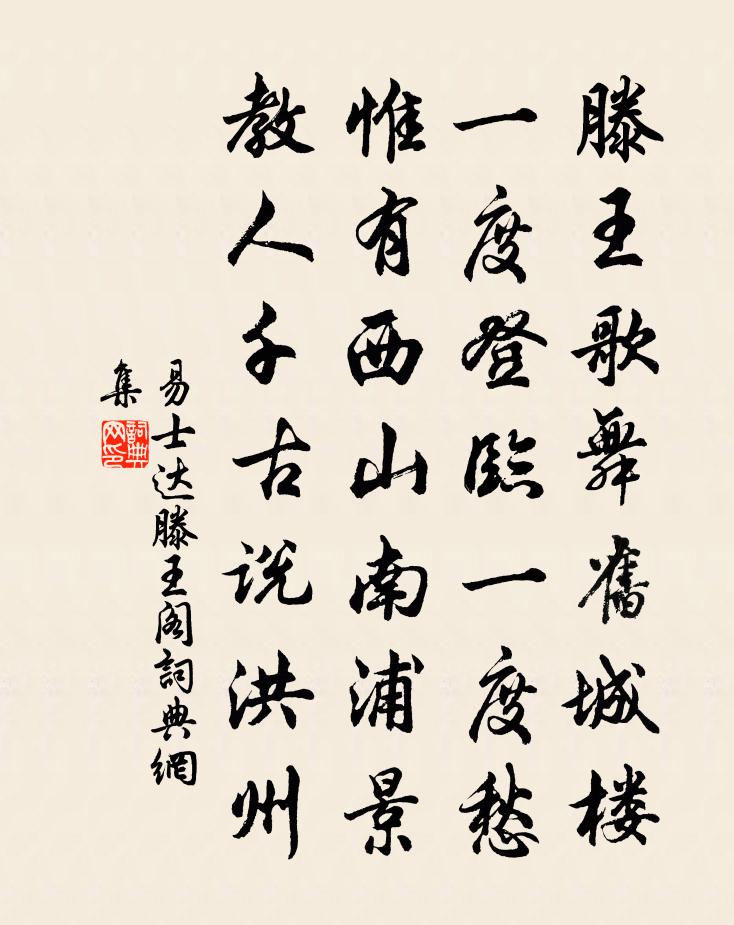 滕王歌舞舊城楼
一度登臨一度愁
惟有西山南浦景
教人千古说洪州
易士达滕王阁詞典網
集
詞典網印